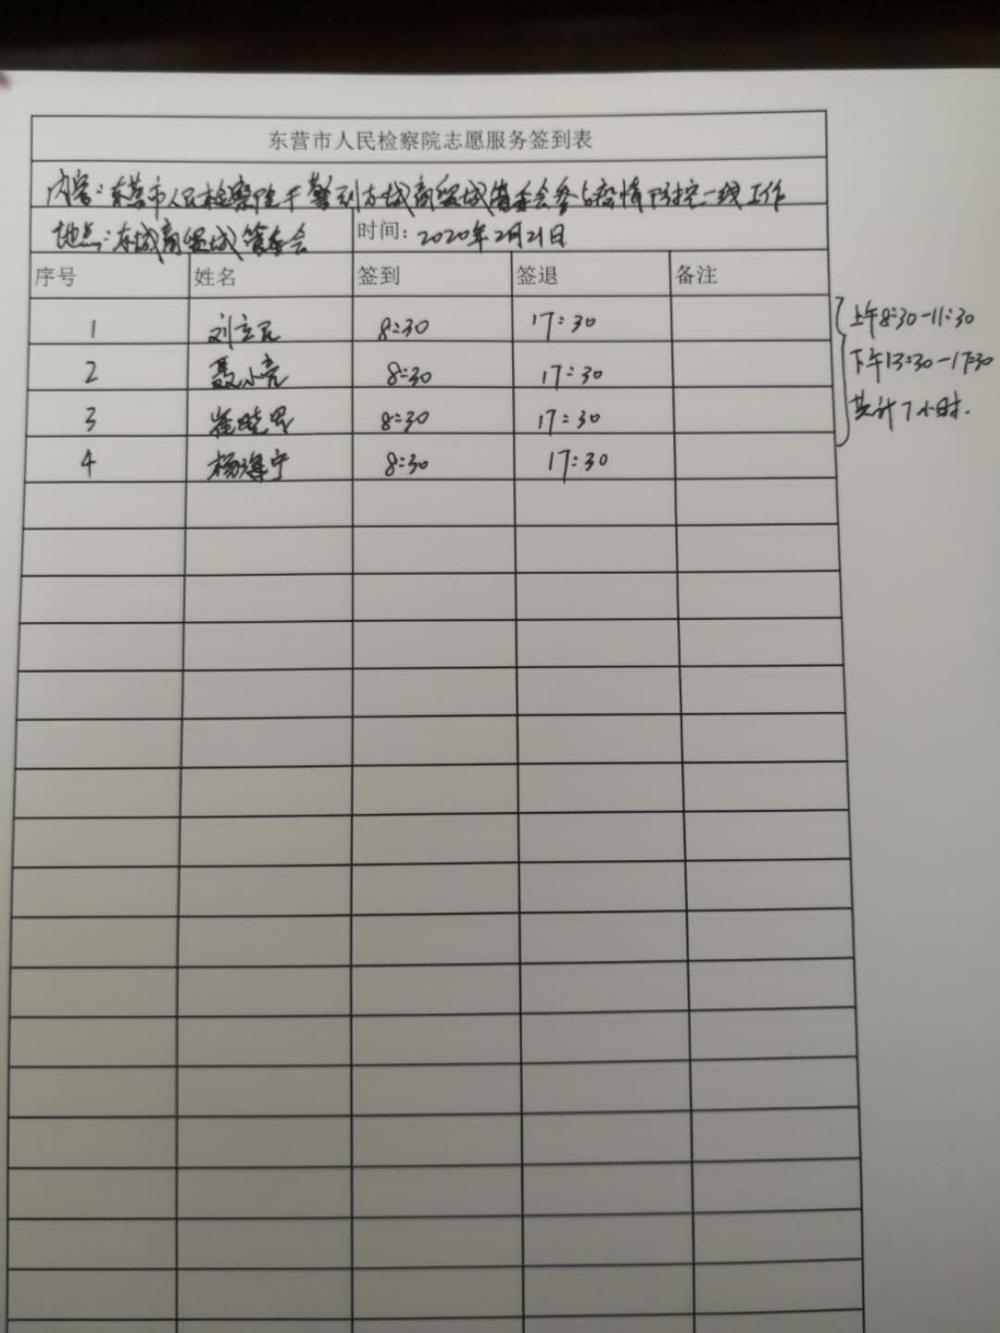 东营市人民检察院志愿服务签到表
内容:东营市人民检察院干警到东城商贸城管委会参与疫情防控一线工作
地点:东城商贸城管委会 时间:2020年2月21日
序号 姓名 签到 签退 备注
1 刘 8:30 17:30
2 聂小亮 8:30 17:30
3 崔晓 8:30 17:30
4 杨海宁 8:30 17:30
上午8:30-11:30
下午13:30-17:30
共计7小时.